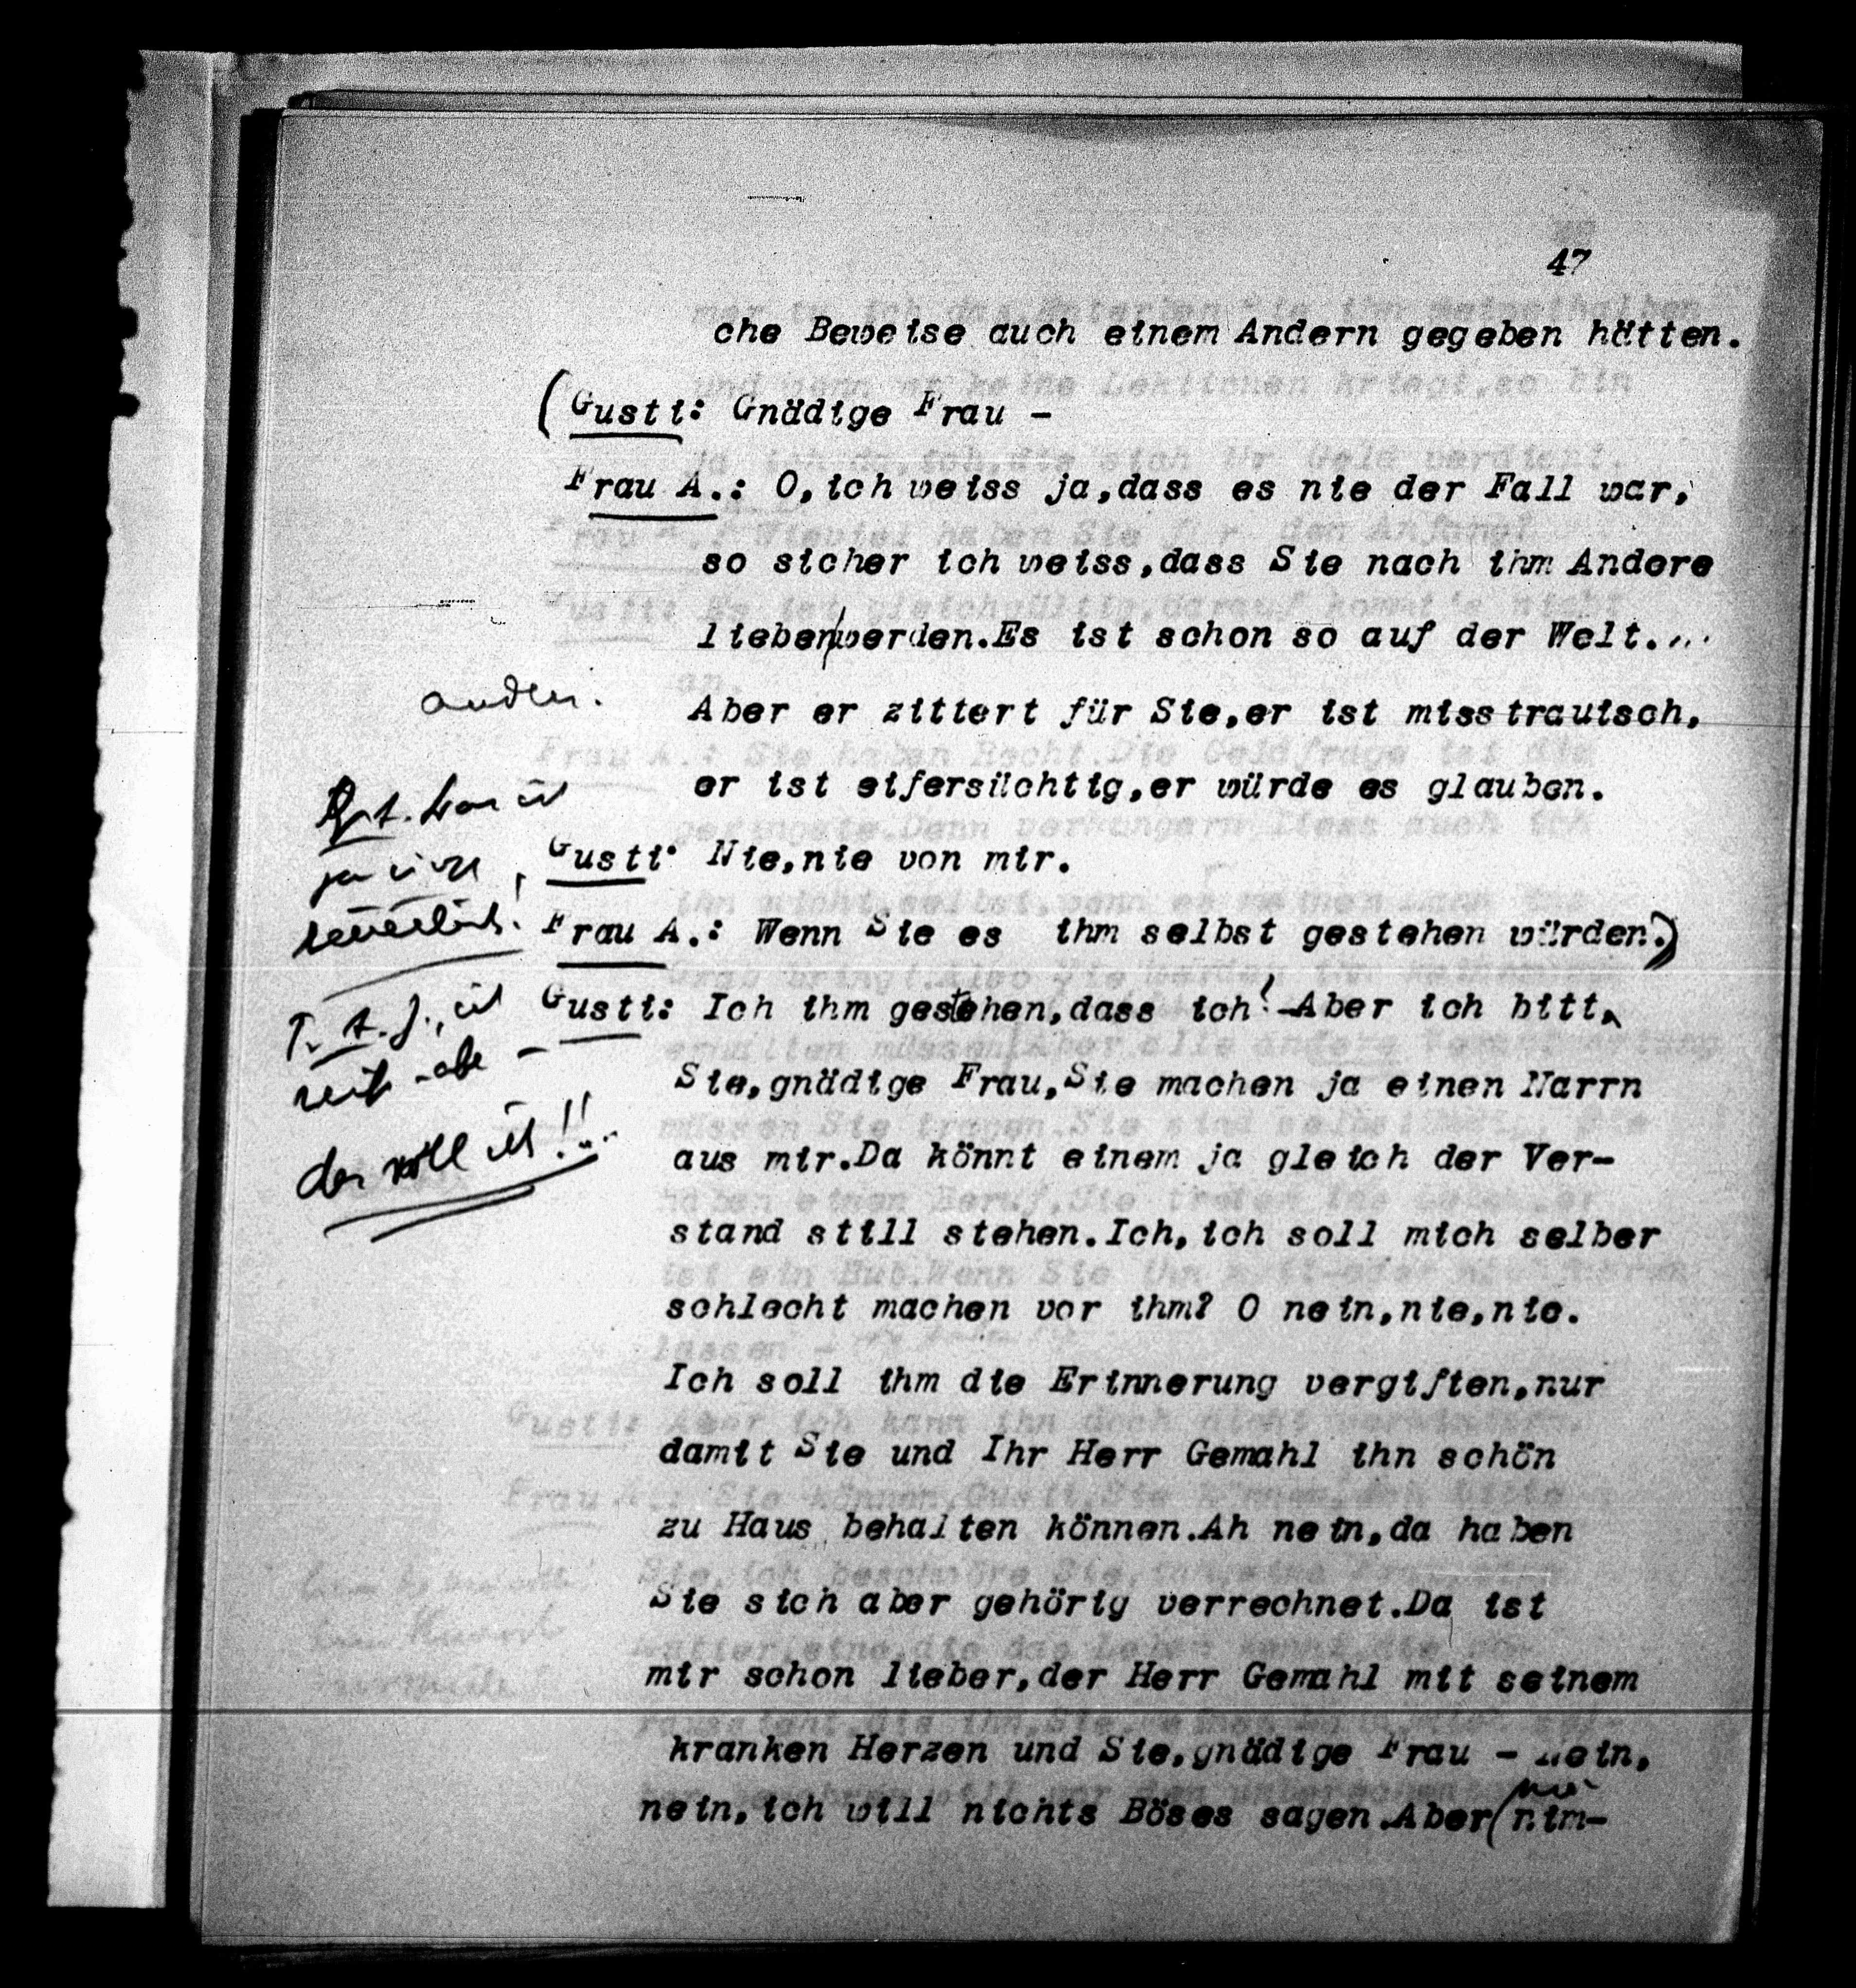 47
che Beweise auch einem Andern gegeben hätten.
(Gusti: Gnädige Frau -
Frau A.: O,ich weiss ja,dass es nie der Fall war,
so sicher ich weiss,dass Sie nach ihm Andere
lieben/werden.Es ist schon so auf der Welt....
Aber er zittert für Sie,er ist misstrauisch,
er ist eifersüchtig,er würde es glauben.
Gusti: Nie,nie von mir.
Frau A.: Wenn Sie es ihm selbst gestehen würden.)
Gusti: Ich ihm gestehen,dass ich! -Aber ich bitt
Sie,gnädige Frau,Sie machen ja einen Narrn
aus mir.Da könnt einem ja gleich der Ver-
stand still stehen.Ich,ich soll mich selber
schlecht machen vor ihm? O nein,nie,nie.
Ich soll ihm die Erinnerung vergiften,nur
damit Sie und Ihr Herr Gemahl ihn schön
zu Haus behalten können.Ah nein,da haben
Sie sich aber gehörig verrechnet.Da ist
mir schon lieber,der Herr Gemahl mit seinem
kranken Herzen und Sie,gnädige Frau - nein,
nein,ich will nichts Böses sagen.Aber(nim-
nie